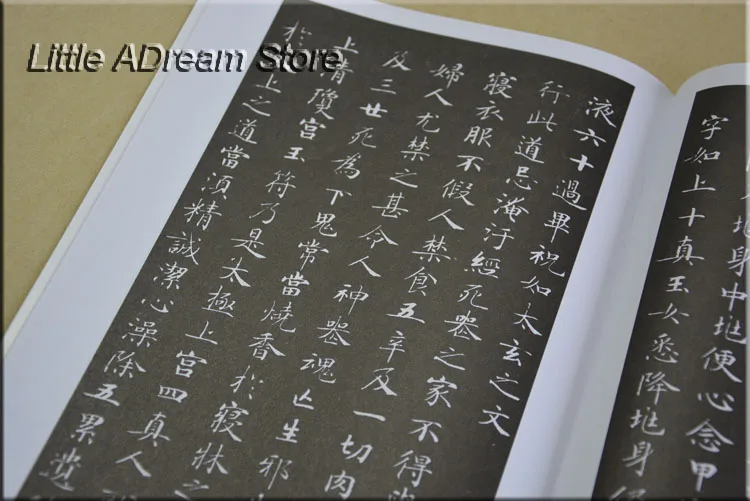 Little ADream Store
垗身中垗便心念甲
字如上十真玉女悉降垗身
液六十過畢祝如太玄之文
行此道忌淹汙經死喪之家不得
寢衣服不假人禁食五辛及一切肉
婦人尤禁之甚令人神喪魂亡生邪
及三世死為下鬼常當燒香於寢牀之
上清瓊宮玉符乃是太極上宮四真人
於 上之道當須精誠潔心澡除五累遺